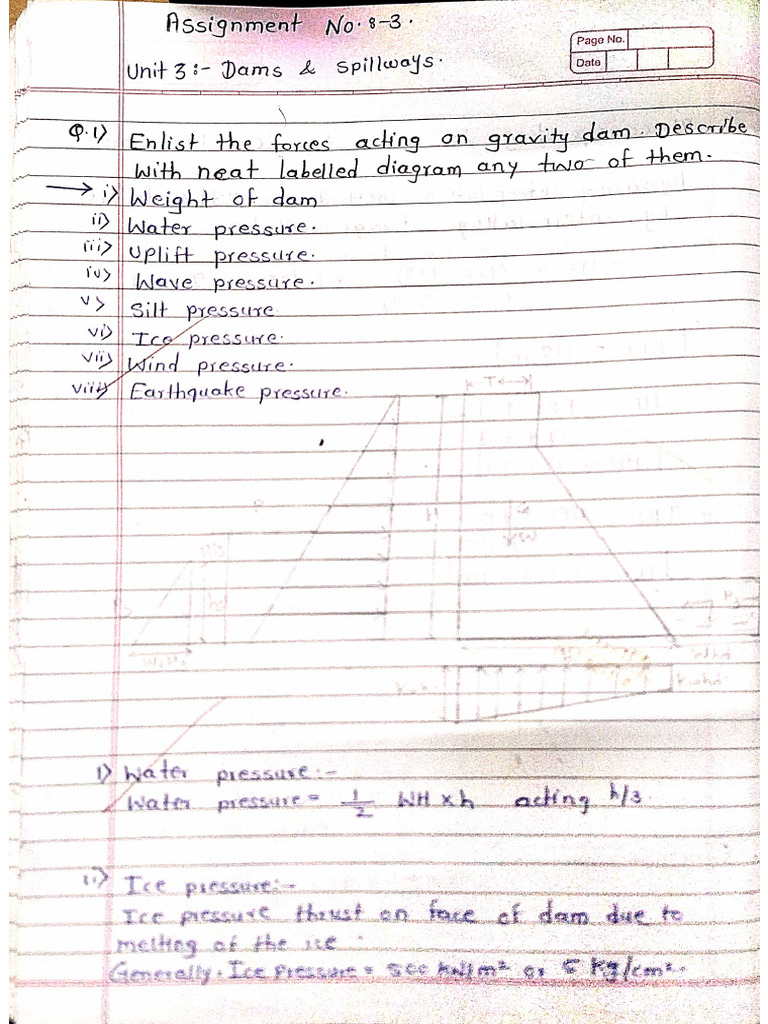 Assignment No. 8-3.
Page No.
Date
Unit 3:- Dams & Spillways.
Q.1) Enlist the forces acting on gravity dam. Describe
with neat labelled diagram any two of them.
→ i) Weight of dam
ii) Water pressure.
iii) Uplift pressure.
iv) Wave pressure.
v) Silt pressure
vi) Ice pressure.
vii) Wind pressure.
viii) Earthquake pressure.
P
H
W
1) Water pressure:-
Water pressure = 1/2 WH x h acting h/3.
ii) Ice pressure:-
Ice pressure thrust on face of dam due to
melting of the ice
Generally. Ice Pressure = 500 kN/m² or 5 kg/cm².